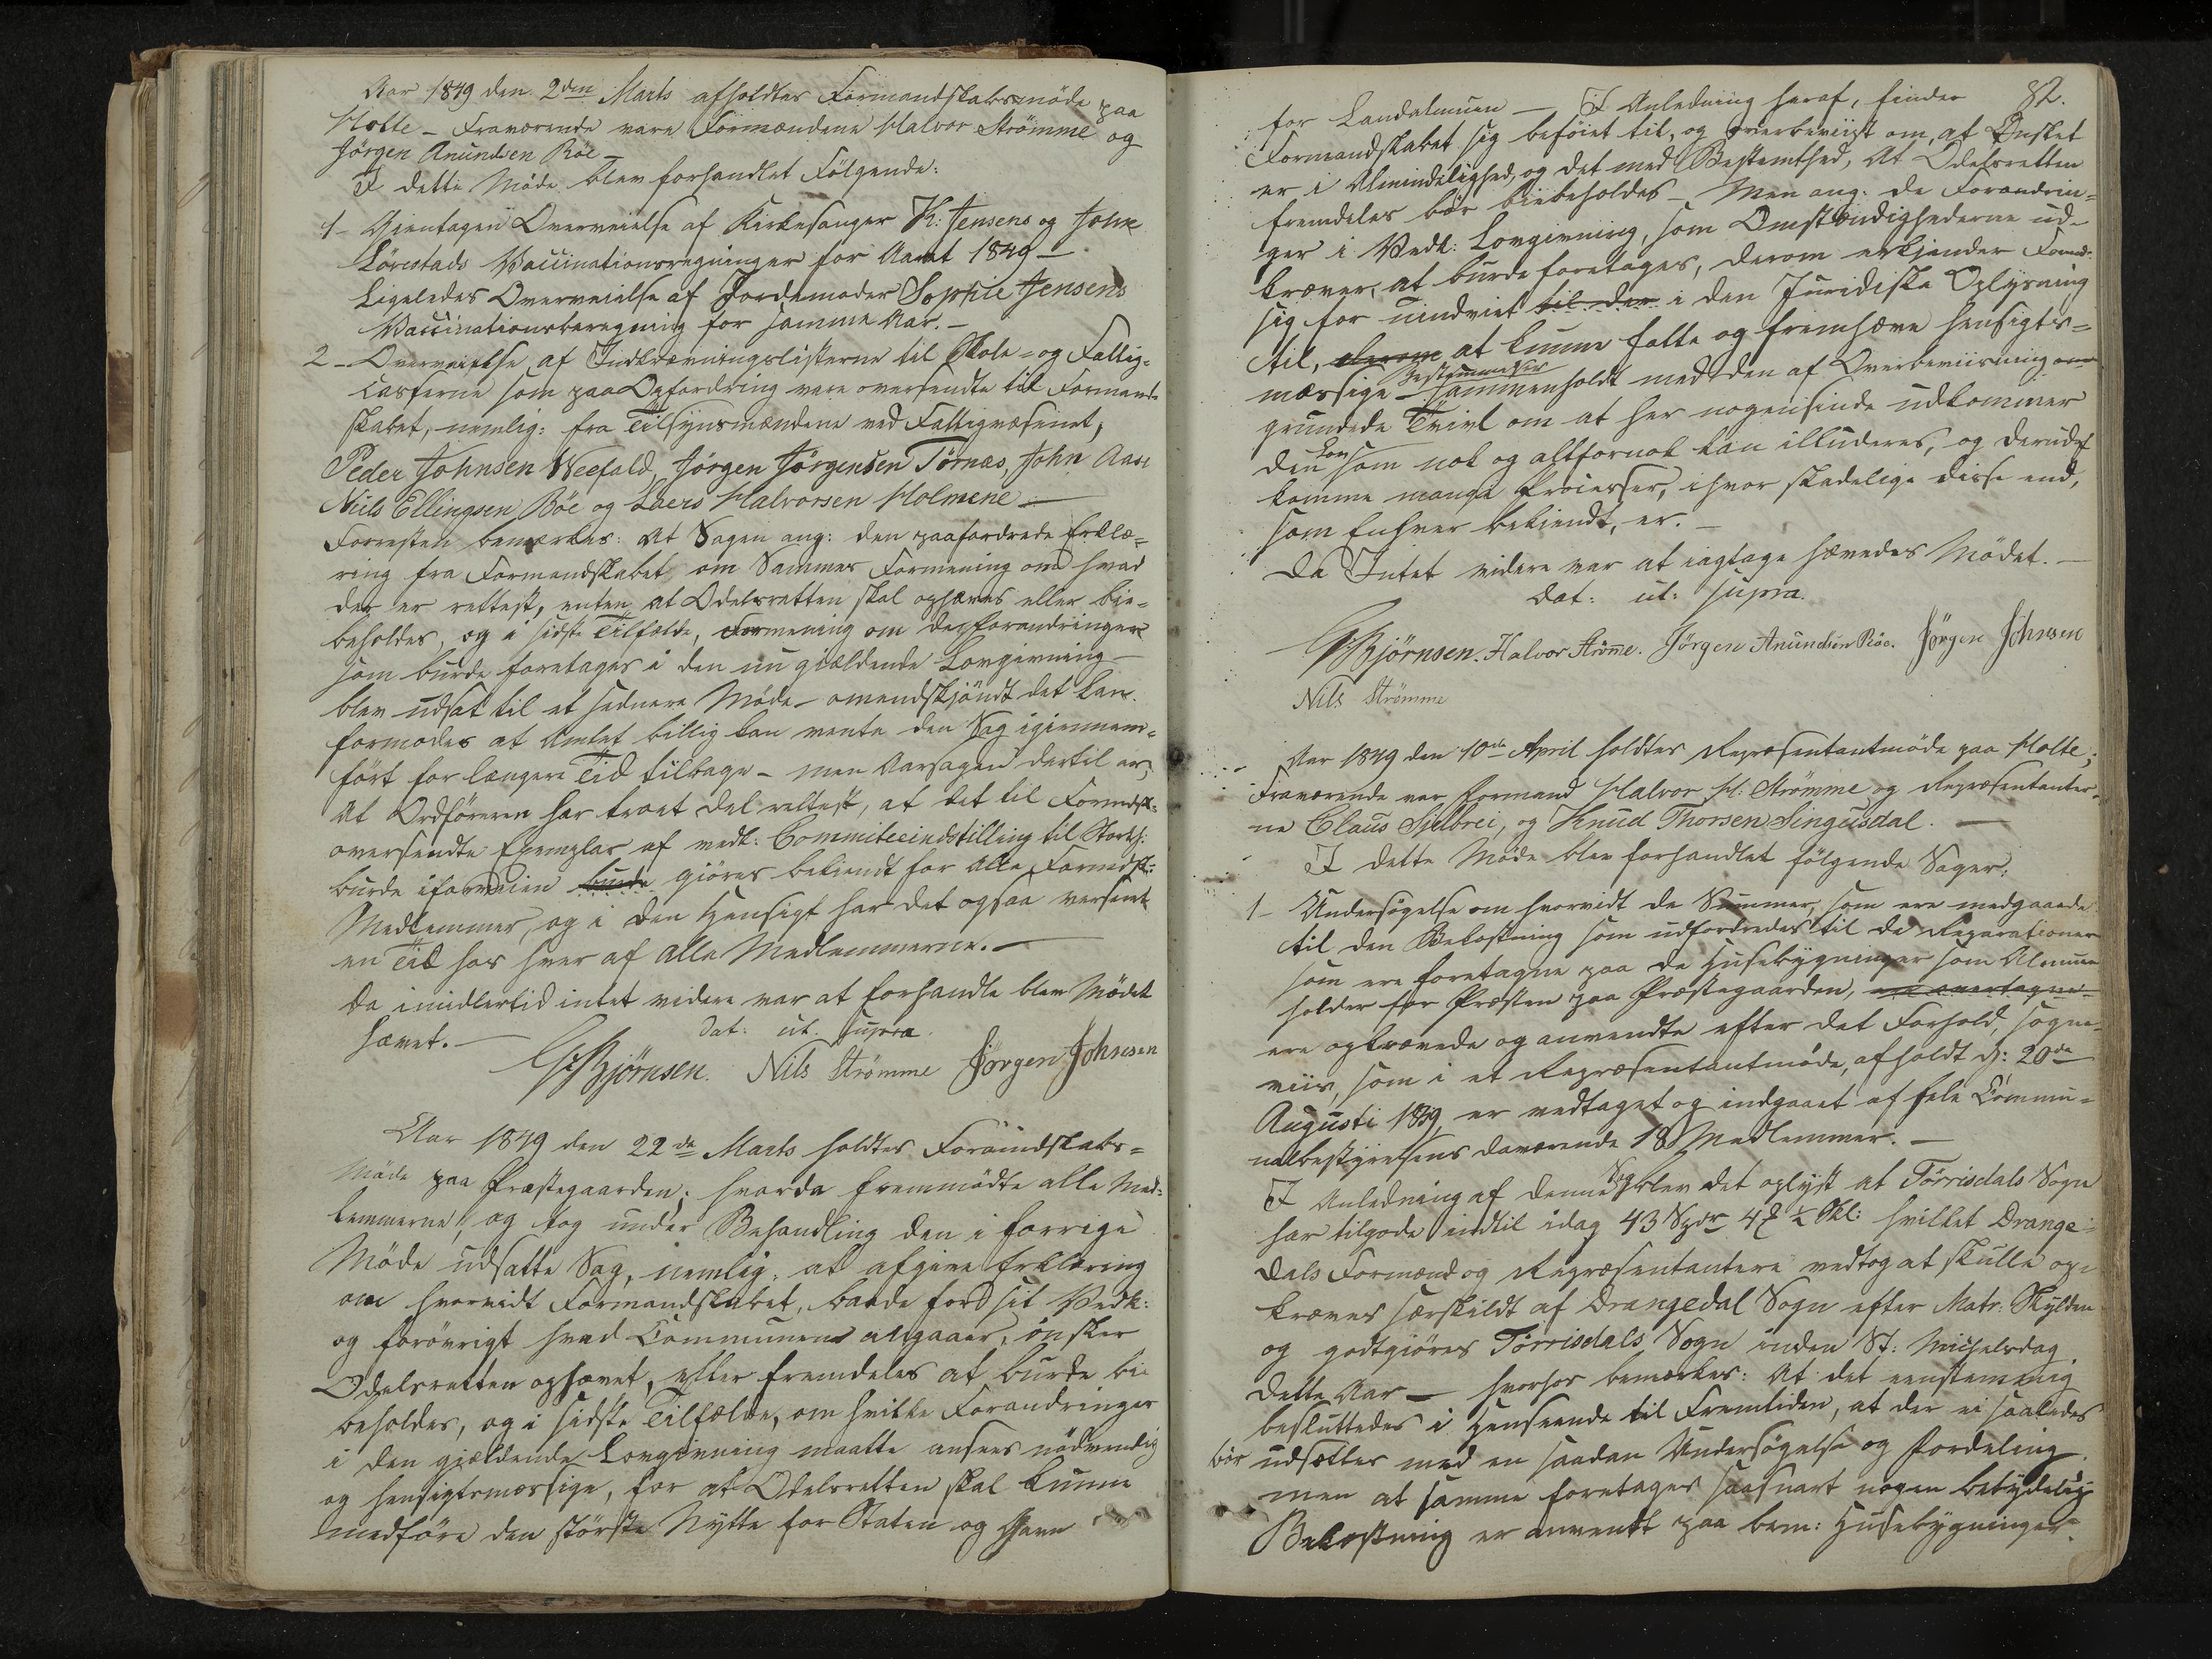 Aar 1849 den 2den Marts afholdtes Formandskabsmöde paa
Holte - Fraværende vare Formændene Halvor Strömme og
Jörgen Anundsen Röe -
I dette Möde blev forhandlet Fölgende:
1 - Gientagen Overveielse af Kirkesanger K: Jensens og John
Lönstads Vaccinationsregninger for Aaret 1849 -
Ligeledes Overveielse af Jordemoder Sophie Jensens
Vaccinationsberegning for samme Aar. -
2 - Overveielse af Indkrævningslisterne til Skole- og Fattig-
Casserne som paa Opfordring vare oversendte til Formand-
skabet, nemlig: fra Tilsynsmændene ved Fattigvæsenet,
Peder Johnsen Weefald, Jörgen Jörgensen Törnæs, John Aase
Niels Ellingsen Böe og Laers Halvorsen Holmene -
Forresten bemærkes: At Sagen ang: den paafordrede Erklæ-
ring fra Formandskabet om Sammes Formening om hvad
der er rettest, enten at Odelsretten skal ophæves eller bie-
beholdes, og i sidste Tilfælde, Formening om de forandringer
som burde foretages i den nu gjældende Lovgivning -
blev udsat til et sednere Möde - omendskjöndt det kan
formodes at Amtet billig kan vente den Sag igiennem-
fört for længere Tid tilbage - men Aarsagen dertil er,
At Ordföreren har troet det rettest, at det til Formdsk:
oversendte Exemplar af vedk: Committeeindstilling til Storth:
burde iforveien burde giöres bekiendt for alle Formdsk:
Medlemmer, og i den Hensigt har det ogsaa verseret
en Tid hos hver af alle Medlemmerne. -
Da imidlertid intet videre var at forhandle blev Mödet
hævet. -
Dat: ut supra.
Björnsen. Nils Strömme Jörgen Johnsen
Aar 1849 den 22de Marts holdtes Formandskabs-
Möde paa Præstegaarden; hvorda fremmödte alle Med-
lemmerne, og tog under Behandling den i forrige
Möde udsatte Sag, nemlig: at afgive Erklæring
om hvorvidt Formandskabet, baade for sit Vedk:
og forövrigt hvad Communen angaaer, önsker
Odelsretten ophævet, eller fremdeles at burde bie
beholdes, og i sidste Tilfælde, om hvilke Forandringer
i den gjældende Lovgivning maatte ansees nödvendig
og hensigtsmæssige, for at Odelsretten skal kunne
medföre den störste Nytte for Staten og Gavn
82.
for Landalmuen - I Anledning heraf, finder
Formandskabet sig beföiet til, og overbeviist om, at Önsket
er i Almindelighed, og det med Bestemthed, At Odelsretten
fremdeles bör biebeholdes - Men ang: de Forandrin-
ger i Vedk: Lovgivning, som Omstændighederne ud-
kræver, at burde foretages, derom erkjender Formd:
sig for uindviet til der i den Juridiske Oplysning
til, derom at kunne fatte og fremhæve hensigts-
mæssige Bestemmelser - sammenholdt med den af Overbeviisning
grundede Tvivl om at her nogensinde udkommer
den Lov som nok og altfornok kan illuderes, og derudaf
komme mange Processer, ihvor skadelige disse end,
som Enhver bekiendt, er. -
Da Intet videre var at iagtage hævedes Mödet. -
Dat: ut: supra.
Björnsen. Halvor Strömme. Jörgen Anundsen Röe. Jörgen Johnsen
Nils Strömme
Aar 1849 den 10de April holdtes Repræsentantmöde paa Holte;
Fraværende var Formand Halvor H: Strömme og Repræsentanter-
ne Claus Sjelbrei, og Knud Thorsen Singusdal. -
I dette Möde blev forhandlet fölgende Sager:
1 - Undersögelse om hvorvidt de Summer, som ere medgaaede
til den Bekostning som udfordredes til de Reparationer
som ere foretagne paa de Husebygninger som Almuen
holder for Præsten paa Præstegaarden, ere foretagne
ere opkrævede og anvendte efter det Forhold, sogne-
viis, som i et Repræsentantmöde, afholdt d: 20de
Augusti 1839, er vedtaget og indgaaet af hele Commu-
nalbestyrelsens daværende 18 Medlemmer. -
I Anledning af denne Sag blev det oplyst at Törrisdals Sogn
har tilgode indtil idag 43 Spdr 47 ½ Skl: hvilket Drange-
dals Formænd og Repræsentantere vedtog at skulle op-
kræves særskildt af Drangedal Sogn efter Matr: Skylden
og godtgiöres Törrisdals Sogn inden St: Michelsdag
dette Aar - hvorhos bemærkes: At det eenstemmig
besluttedes i Henseende til Fremtiden, at der ei saaledes
bör udsættes med en saadan Undersögelse og Fordeling
men at samme foretages saasnart nogen betydelig
Bekostning er anvendt paa bem: Husebygninger.